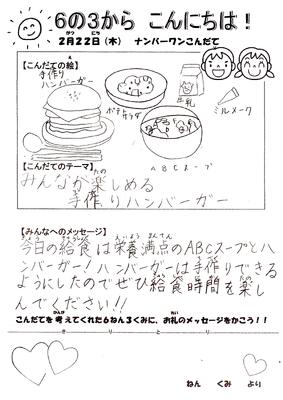 6の3から こんにちは！
2月22日（木） ナンバーワンこんだて
【こんだての絵】
手作り
ハンバーガー
ポテトサラダ
牛乳
ミルメーク
ABCスープ
【こんだてのテーマ】
みんなが楽しめる
手作りハンバーガー
【みんなへのメッセージ】
今日の給食は栄養満点のABCスープとハ
ンバーガー！ハンバーガーは手作りできる
ようにしたのでぜひ給食時間を楽し
んでください!!
こんだてを考えてくれた6ねん3くみに、お礼のメッセージをかこう！！
きりとり
ねん くみ より